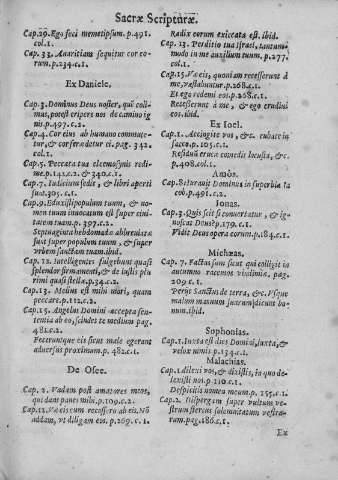 Sacræ Scripturæ.
Cap.29. Ego feci memetipsum. p.491.
col.1.
Cap. 33. Auaritiam sequitur cor eo-
rum. p.234.c.1.
Ex Daniele.
Cap.3. Dominus Deus noster, qui colli-
mus, potest eripere nos de camino ig
nis. p.497.c.2.
Cap.4. Cor eius ab humano commute-
tur, & cor feræ detur ei. pag. 342.
col.1.
Cap.5. Peccata tua eleemosynis redi-
me. p.141.c.2. & 340.c.1.
Cap.7. Iudicium sedit, & libri aperti
sunt. 305. c.1.
Cap.9. Eduxisti populum tuum, & no-
men tuum inuocatum est super ciui-
tatem tuam. p.397.c.2.
Septuaginta hebdomadæ abbreuiatæ
sunt super populum tuum, & super
vrbem sanctam tuam. ibid.
Cap.12. Intelligentes fulgebunt quasi
splendor firmamenti, & de iustis plu
rimi quasi stella. p.34.c.2.
Cap.13. Melius est mihi mori, quam
peccare. p.112.c.2.
Cap.13. Angelus Domini accepta sen-
tentia ab eo, scindes te medium pag.
482.c.2.
Fecerunt que eis sicut male egerant
aduersus proximum. p. 482.c.1.
De Osee.
Cap. 2. Vadam post amatores meos,
qui dant panes mihi. p.109.c.2.
Cap.12. Væ eis cum recessero ab eis. Nō
addam, vt diligam eos. p.269. c.1.
Radix eorum exiccata est. ibid.
Cap. 13. Perditio tua Israel, tantum-
modo in me auxilium tuum. p.277.
col.1.
Cap.15. Væ eis, quoniam recesserunt à
me, vastabuntur. p.268.c.1.
Et ego redemi eos. p.268.c.1.
Recesserunt à me, & ego erudiui
eos. ibid.
Ex Ioel.
Cap.1. Accingite vos, &c. cubate in
sacco. p.105.c.1.
Residuū erucæ comedit locusta, &c.
p.408.col.1.
Amòs.
Cap.8. Iurauit Dominus in superbia Ia
cob. p.491.c.2.
Ionas.
Cap.3. Quis scit si conuertatur, & ig-
noscat Deus? p.179. c.1.
Vidit Deus opera eorum. p.184.c.1.
Michæas.
Cap. 7. Factus sum sicut qui colligit in
autumno racemos vindimiæ. pag.
209 c.1.
Perijt Sanctus de terra, &c. Vsque
malum manuum suarum dicunt bo-
num. ibid.
Sophonias.
Cap.1. Iuxta est dies Domini, iuxta, &
velox nimis. p.134.c.1.
Malachias.
Cap.1. dilexi vos, & dixistis, in quo di-
lexisti nos. p.110.c.1.
Despicitis nomen meum. p. 155.c.1.
Cap.2. Dispergam super vultum ve-
strum stercus solemnitatum vestra-
rum. pag.186.c.1.
Ex